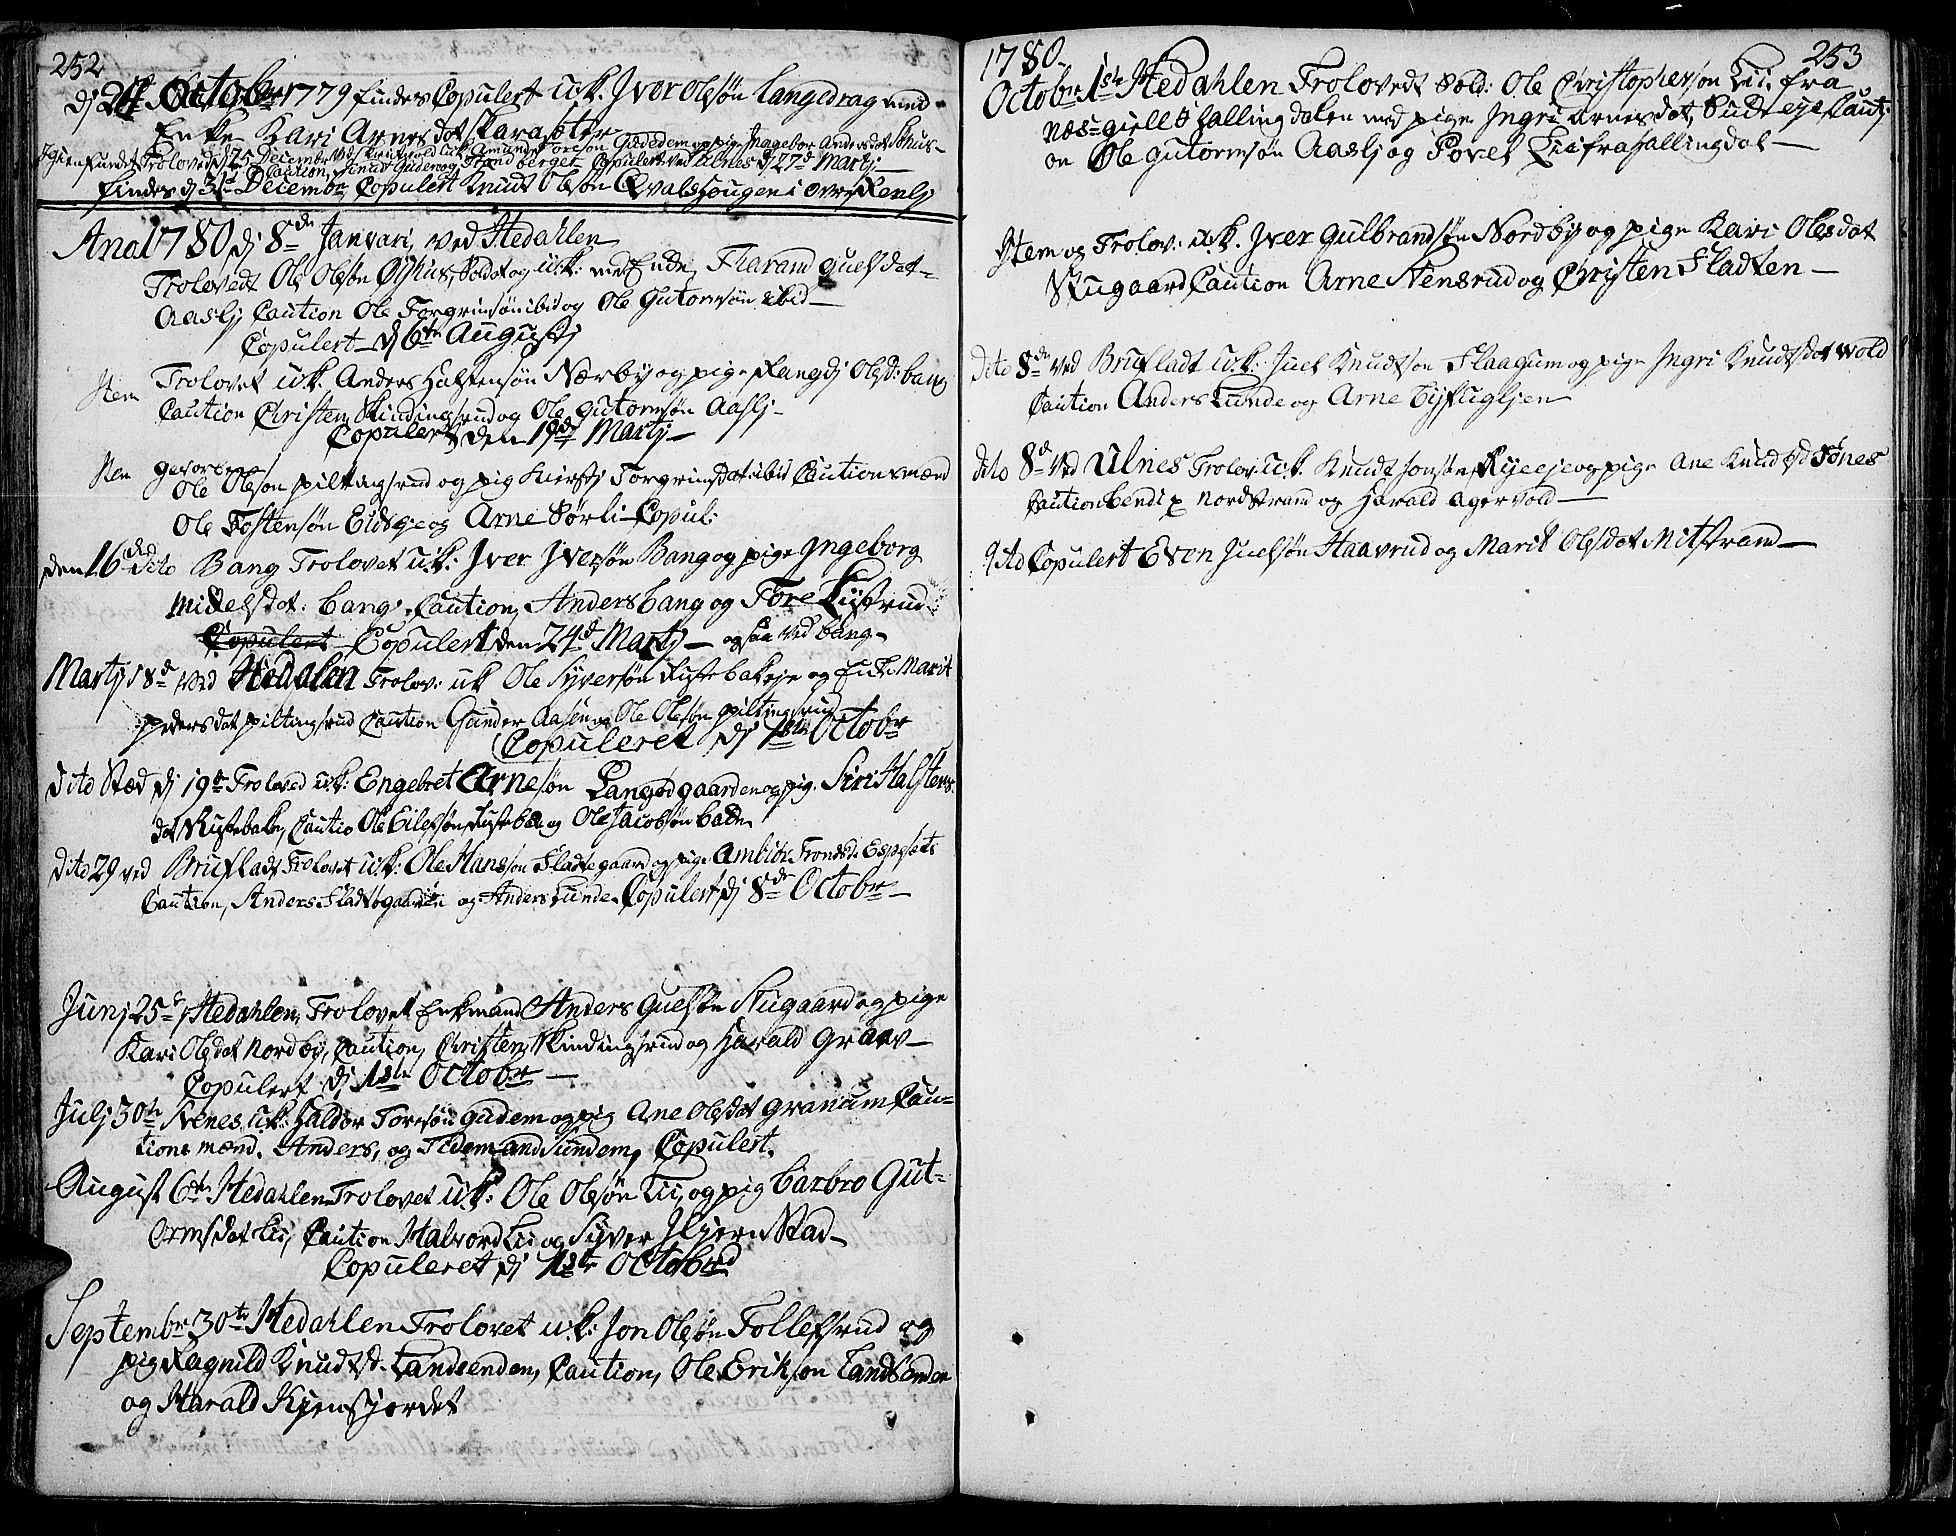 252
dj 24 October 1779 findes Copulert u.k. Iver Olsøn Langedrag med
Enke Kari Arnesdot Skarasæter
Igienfundet Troloved dj 25 December ved Amund Toresøn Gudedem og pig Ingebor Andersdot Thus-
Caution, Knud Gudem og Strandberget Copulert ved Ulnes dj 27de Martj
findes dj 31t Decembr Copulert Knudt Olsøn Qvalshougen i Øvre Renlj
Ano 1780 dj 8de Janvari, ved Hedahlen
Trolovedt Ole Olsøn Øyhus, Soldat og u:k: med Enke, Tharand Guelsdot
Aaslj Caution Ole Torgrimsøn ibid og Ole Gutormsøn ibid
Copulert dj 6te Augustj
Item Trolovet u.k. Anders Halstensøn Nærby og pige Rangdj Olsd: bang
Caution Christen Skindingsrud og Ole Gutormsøn Aaslj
Copulert den 19de Martj
Item gevorben
Ole Olsøn piltingsrud og pig Kierstj Torgrimsdot ibid Cautionsmænd
Ole Tostensøn Eidsge og Arne Sørli Copul:
den 16de Dito Bang Trolovet u:k: Iver Iversøn Bang og pige Ingeborg
Mikkelsdot: bang, Caution, Anders bang og Tore Lijstrud
Copulert Copulert den 24de Martj og saa ved bang
Martj 18de ved Hedalen Trolov: u:k Ole Syversøn Rustebakeje og Enke Marit
pedersdot piltingsrud Caution Gunder Aasen og Ole Olsøn piltingsrud
Copuleret dj 1ste Octobr
Dito Stæd dj 19de Troloved u:k: Engebret Arnesøn Langedgaarden og pig. Siri Halstens
dot Rustebake, Cautio Ole Eilefsøn Rusteba og Ole Jacobsøn bakke
Dito 29 ved Brufladt Trolovet u:k: Ole Hansøn Fladtegaard og pige Ambiør Trondsd: Espeset
Caution, Anders Fladtøgaarden og Anders Lunde Copulert dj 8de Octobr
Junj 25de Hedahlen, Trolovet Enkmand Anders Guelsøn Stugaard og pige
Kari Olsdot Nordby, Caution, Christen Skindingsrud og Harald Graav
Copulert dj 1ste Octobr
Julj 30te Svenes u:k: Haldor Toresøn Gudem og pig Ane Olsdot Granum Cau-
tions mænd. Anders, og Tideman Sundem, Copulert.
August 6te Hedahlen Trolovet u:k: Ole Olsøn Lii, og pig Barbro Gut-
Ormsdot Lii, Caution Halvord Lii og Syver Hjernstad
Copuleret dj 1ste Octobr
Septembr 30te Hedahlen Trolovet u.k: Jon Olsøn Tollefsrud og
pig Ragnild Knudtsd. Landsenden, Caution, Ole Erikson Landsenden
og Harald Kjensjordet
1780. 253
Octobr 1ste Hedahlen Trolovedt Sold: Ole Christophersøn Lii. fra
Næs-giell Hallingdalen med pige Ingri Arnesdot, Sudreye Cauti-
on Ole Gutormsøn Aaslj og Povel Lii fra Hallingdal
Item og Trolov: u.k. Iver Gulbrandsøn Nordby og pige Kari Olsdot
Stugaard Caution Arne Stensrud og Christen Fladten
Dito 8de ved Brufladt u:k: Juel Knudtsøn Flaagum og pige Ingri Knudtsdot wold
Caution Anders Lunde og Arne Byfugljen
dito 8de ved Ulnes Trolov: u:k. Knudt Jonsøn Ryeeje og pige Ane Knudtsd Fønes
Caution bendix Nordstrand og Harald Agervold
dito Copulert Even Juelsøn Haavrud og Marit Olsdot Mitstrand